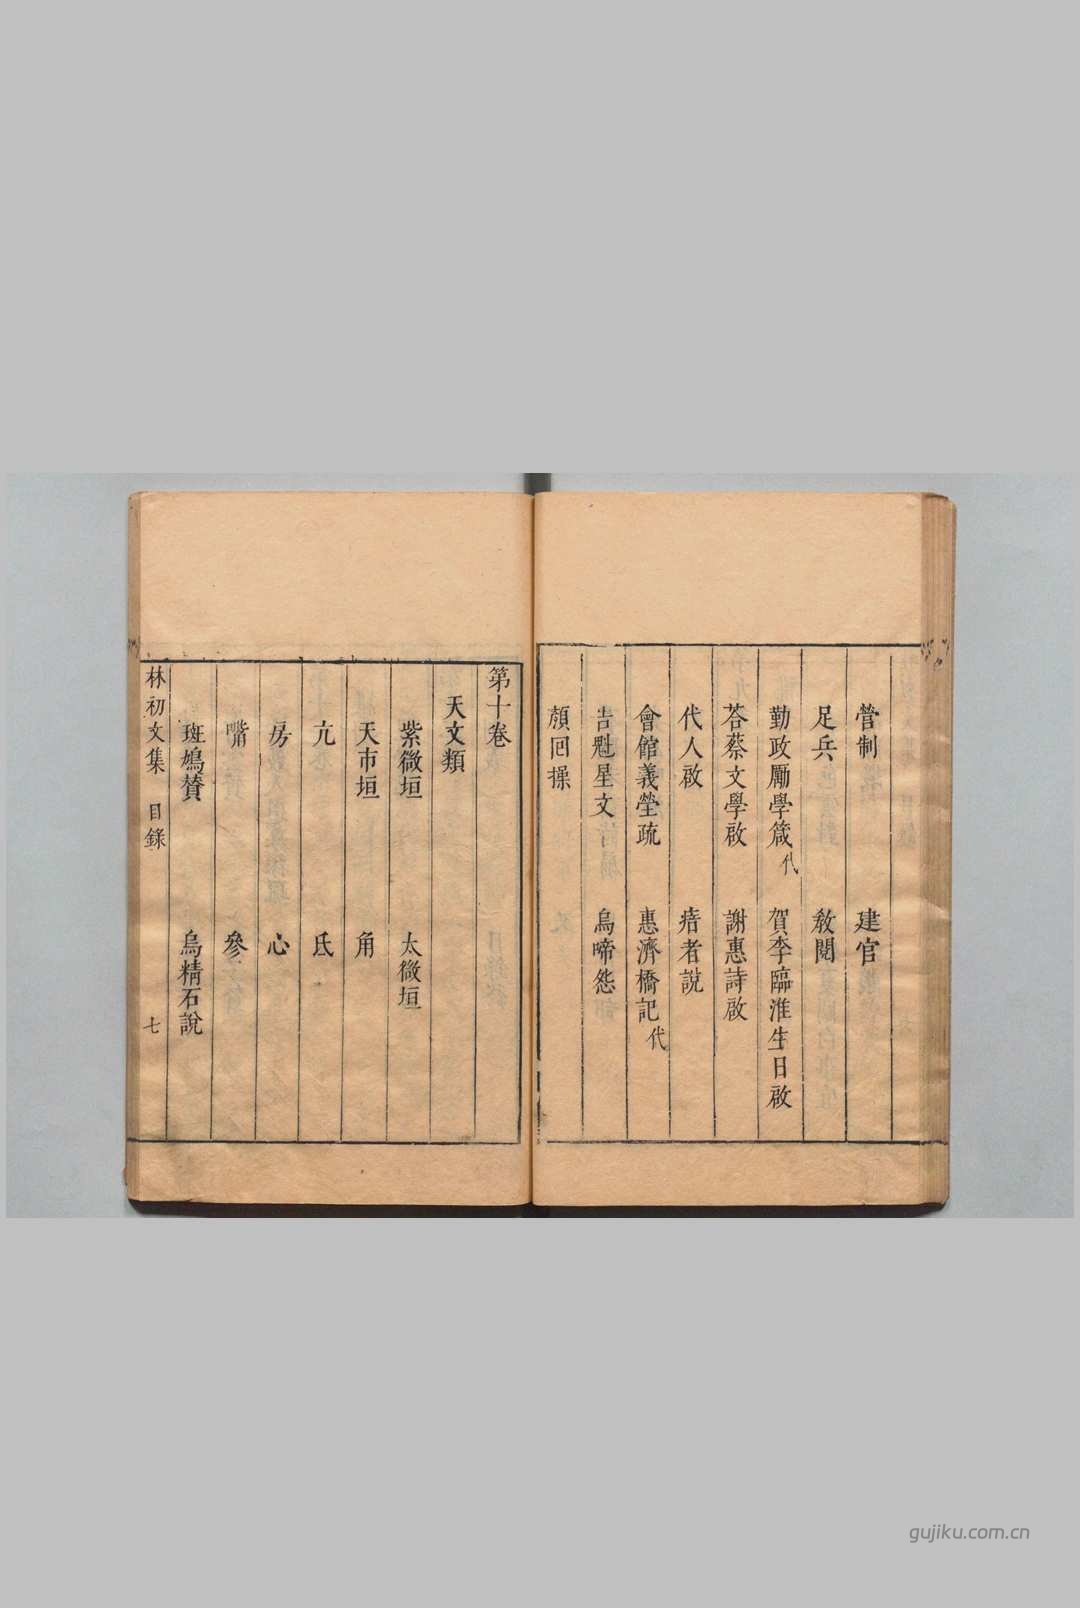 營制　建官
足兵　敎閱
勤政勵學箴代　賀李臨淮生日啟
荅蔡文學啟　謝惠詩啟
代人啟　瘖者說
會館義瑩疏　惠濟橋記代
告魁星文　烏啼怨
顏回操
第十卷
天文類
紫微垣　太微垣
天市垣　角
亢　氐
房　心
嘴　參
斑鳩賛　烏精石說
林初文集　目錄　七
gujiku.com.cn